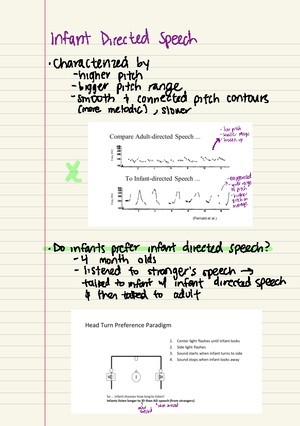 Infant Directed Speech
• Characterized by
- higher pitch
- bigger pitch range
- smooth + connected pitch contours
(more melodic), slower
Compare Adult-directed Speech ...
- low pitch
- smaller range
To Infant-directed Speech ...
- exaggerated
- wide range of pitch
- higher pitch on average
(Fernald et al.)
• Do infants prefer infant directed speech?
- 4 month olds
- listened to stranger's speech →
talked to infant w/ infant directed speech
& then talked to adult
Head Turn Preference Paradigm
1. Center light flashes until infant looks
2. Side light flashes
3. Sound starts when infant turns to side
4. Sound stops when infant looks away
So ... infant chooses how long to listen!
Infants listen longer to ID than AD speech (from strangers)
infant directed
adult directed